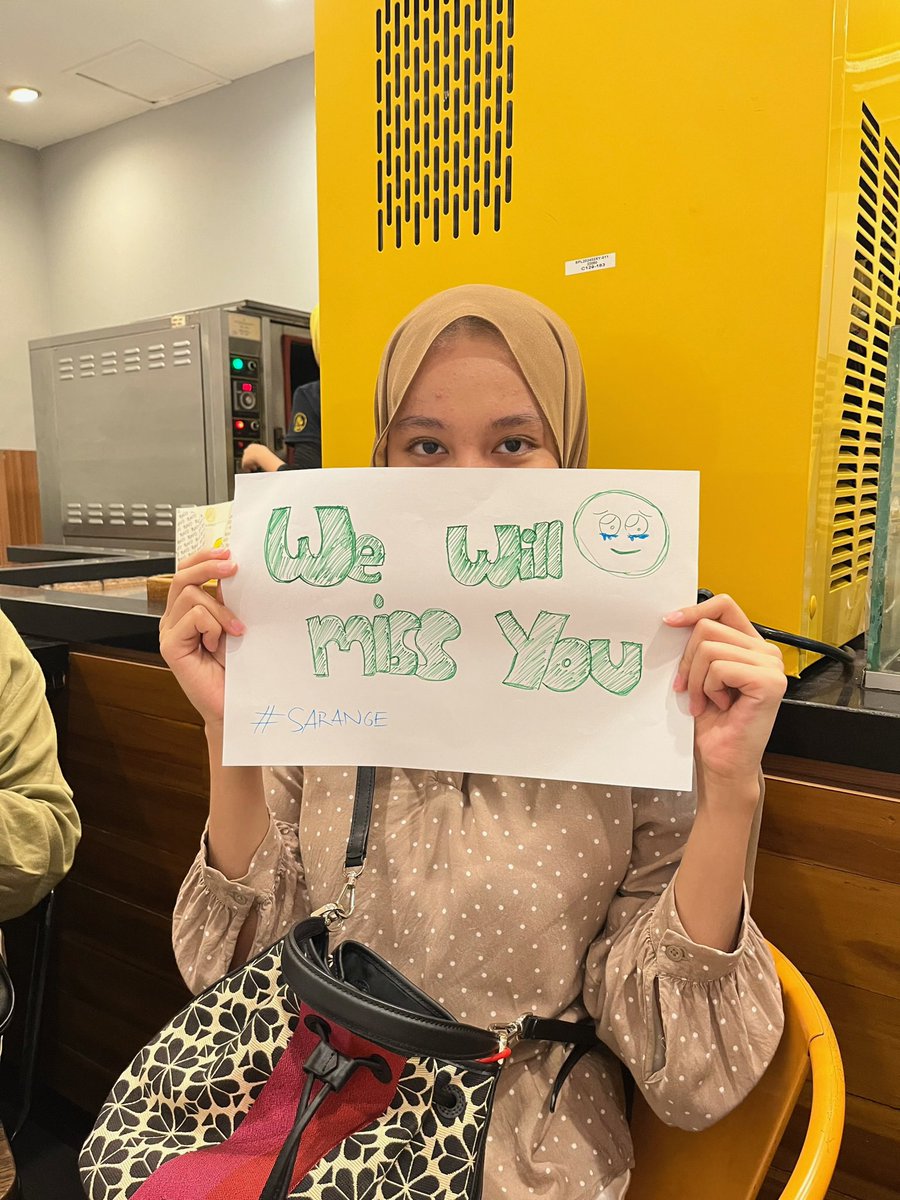 We Will
miss You
#SARANGE